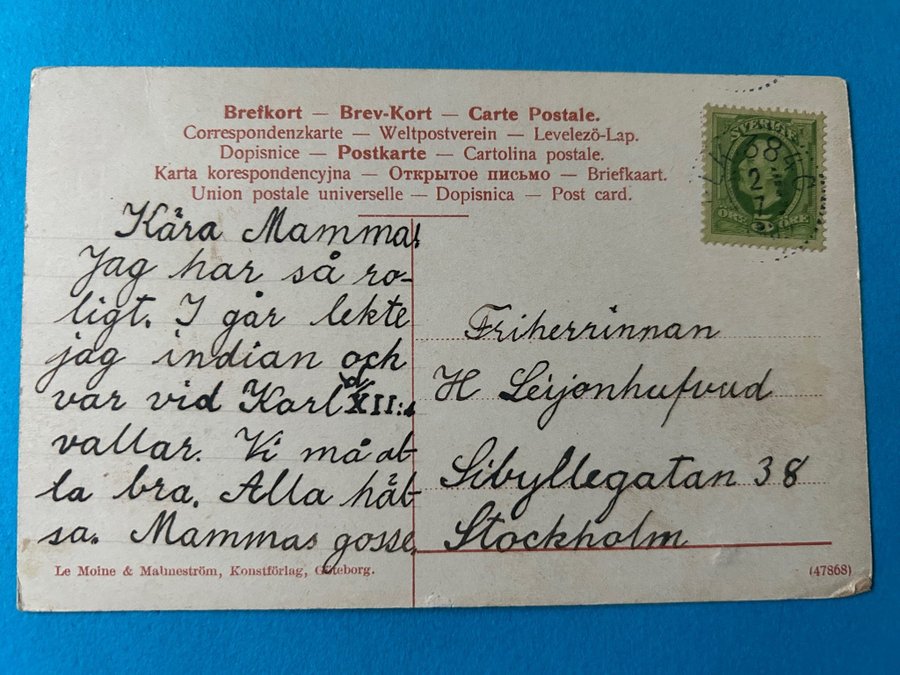 Brefkort — Brev-Kort — Carte Postale.
Correspondenzkarte — Weltpostverein — Levelezö-Lap.
Dopisnice — Postkarte — Cartolina postale.
Karta korespondencyjna — Открытое письмо — Briefkaart.
Union postale universelle — Dopisnica — Post card.
SVERIGE
ÖRE ÖRE
Kära Mamma!
Jag har så ro-
ligt. I går lekte
jag indian och
var vid Karl d. XII:s
vallar. Vi må al-
la bra. Alla häl-
sa. Mammas gosse.
Friherrinnan
H Leijonhufvud
Sibyllegatan 38
Stockholm
Le Moine & Malmeström, Konstförlag, Göteborg.
(47868)